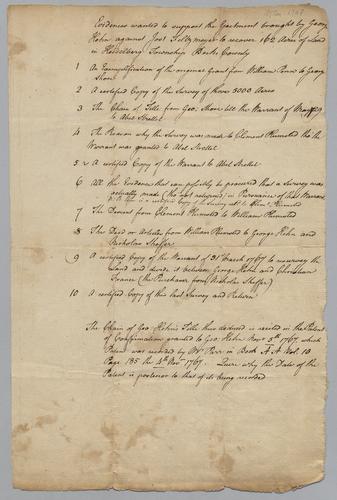 Evidences wanted to support the Ejectment brought by George
Hehn against Jost Fellzmoyer to recover 162 Acres of Land
in Heidelberg Township Berks County
1 An Exemplification of the original Grant from William Penn to George
Shore
2 A certified Copy of the Survey of Shores 5000 Acres
3 The Chain of Title from Geo: Shore till the Warrant of
to Abel Strettel
4 The Reason why the Survey was made to Clement Plumsted tho the
Warrant was granted to Abel Strettel
5 A certified Copy of the Warrant to Abel Strettel
6 All the Evidence that can possibly be procured that a Survey was
actually made (tho not returned) in Pursuance of that Warrant
is a certified Copy of the Survey to Clemt. Plumsted
7 The Descent from Clement Plumsted to William Plumsted
8 The Deed or Articles from William Plumsted to George Hehn and
Nicholas Sheffer
9 A certified Copy of the Warrant of 31st March 1767 to resurvey the
Land and divide it between George Hehn and Christian
Frantz (the Purchaser from Nicholas Sheffer)
10 A certified Copy of this last Survey and Return
The Chain of Geo: Hehn's Title thus deduced is recited in the Patent
of Confirmation granted to Geo: Hehn Novr. 5th. 1767. which
Patent was recorded by Mr. Parr in Book A A Vol. 10
Page 185 the 4th. Novr. 1767. Quere why the Date of the
Patent is posterior to that of its being recorded